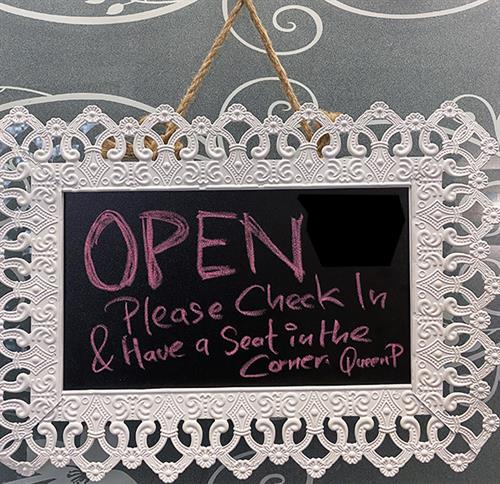 OPEN
Please Check In
& Have a Seat in the
Corner. QueenP